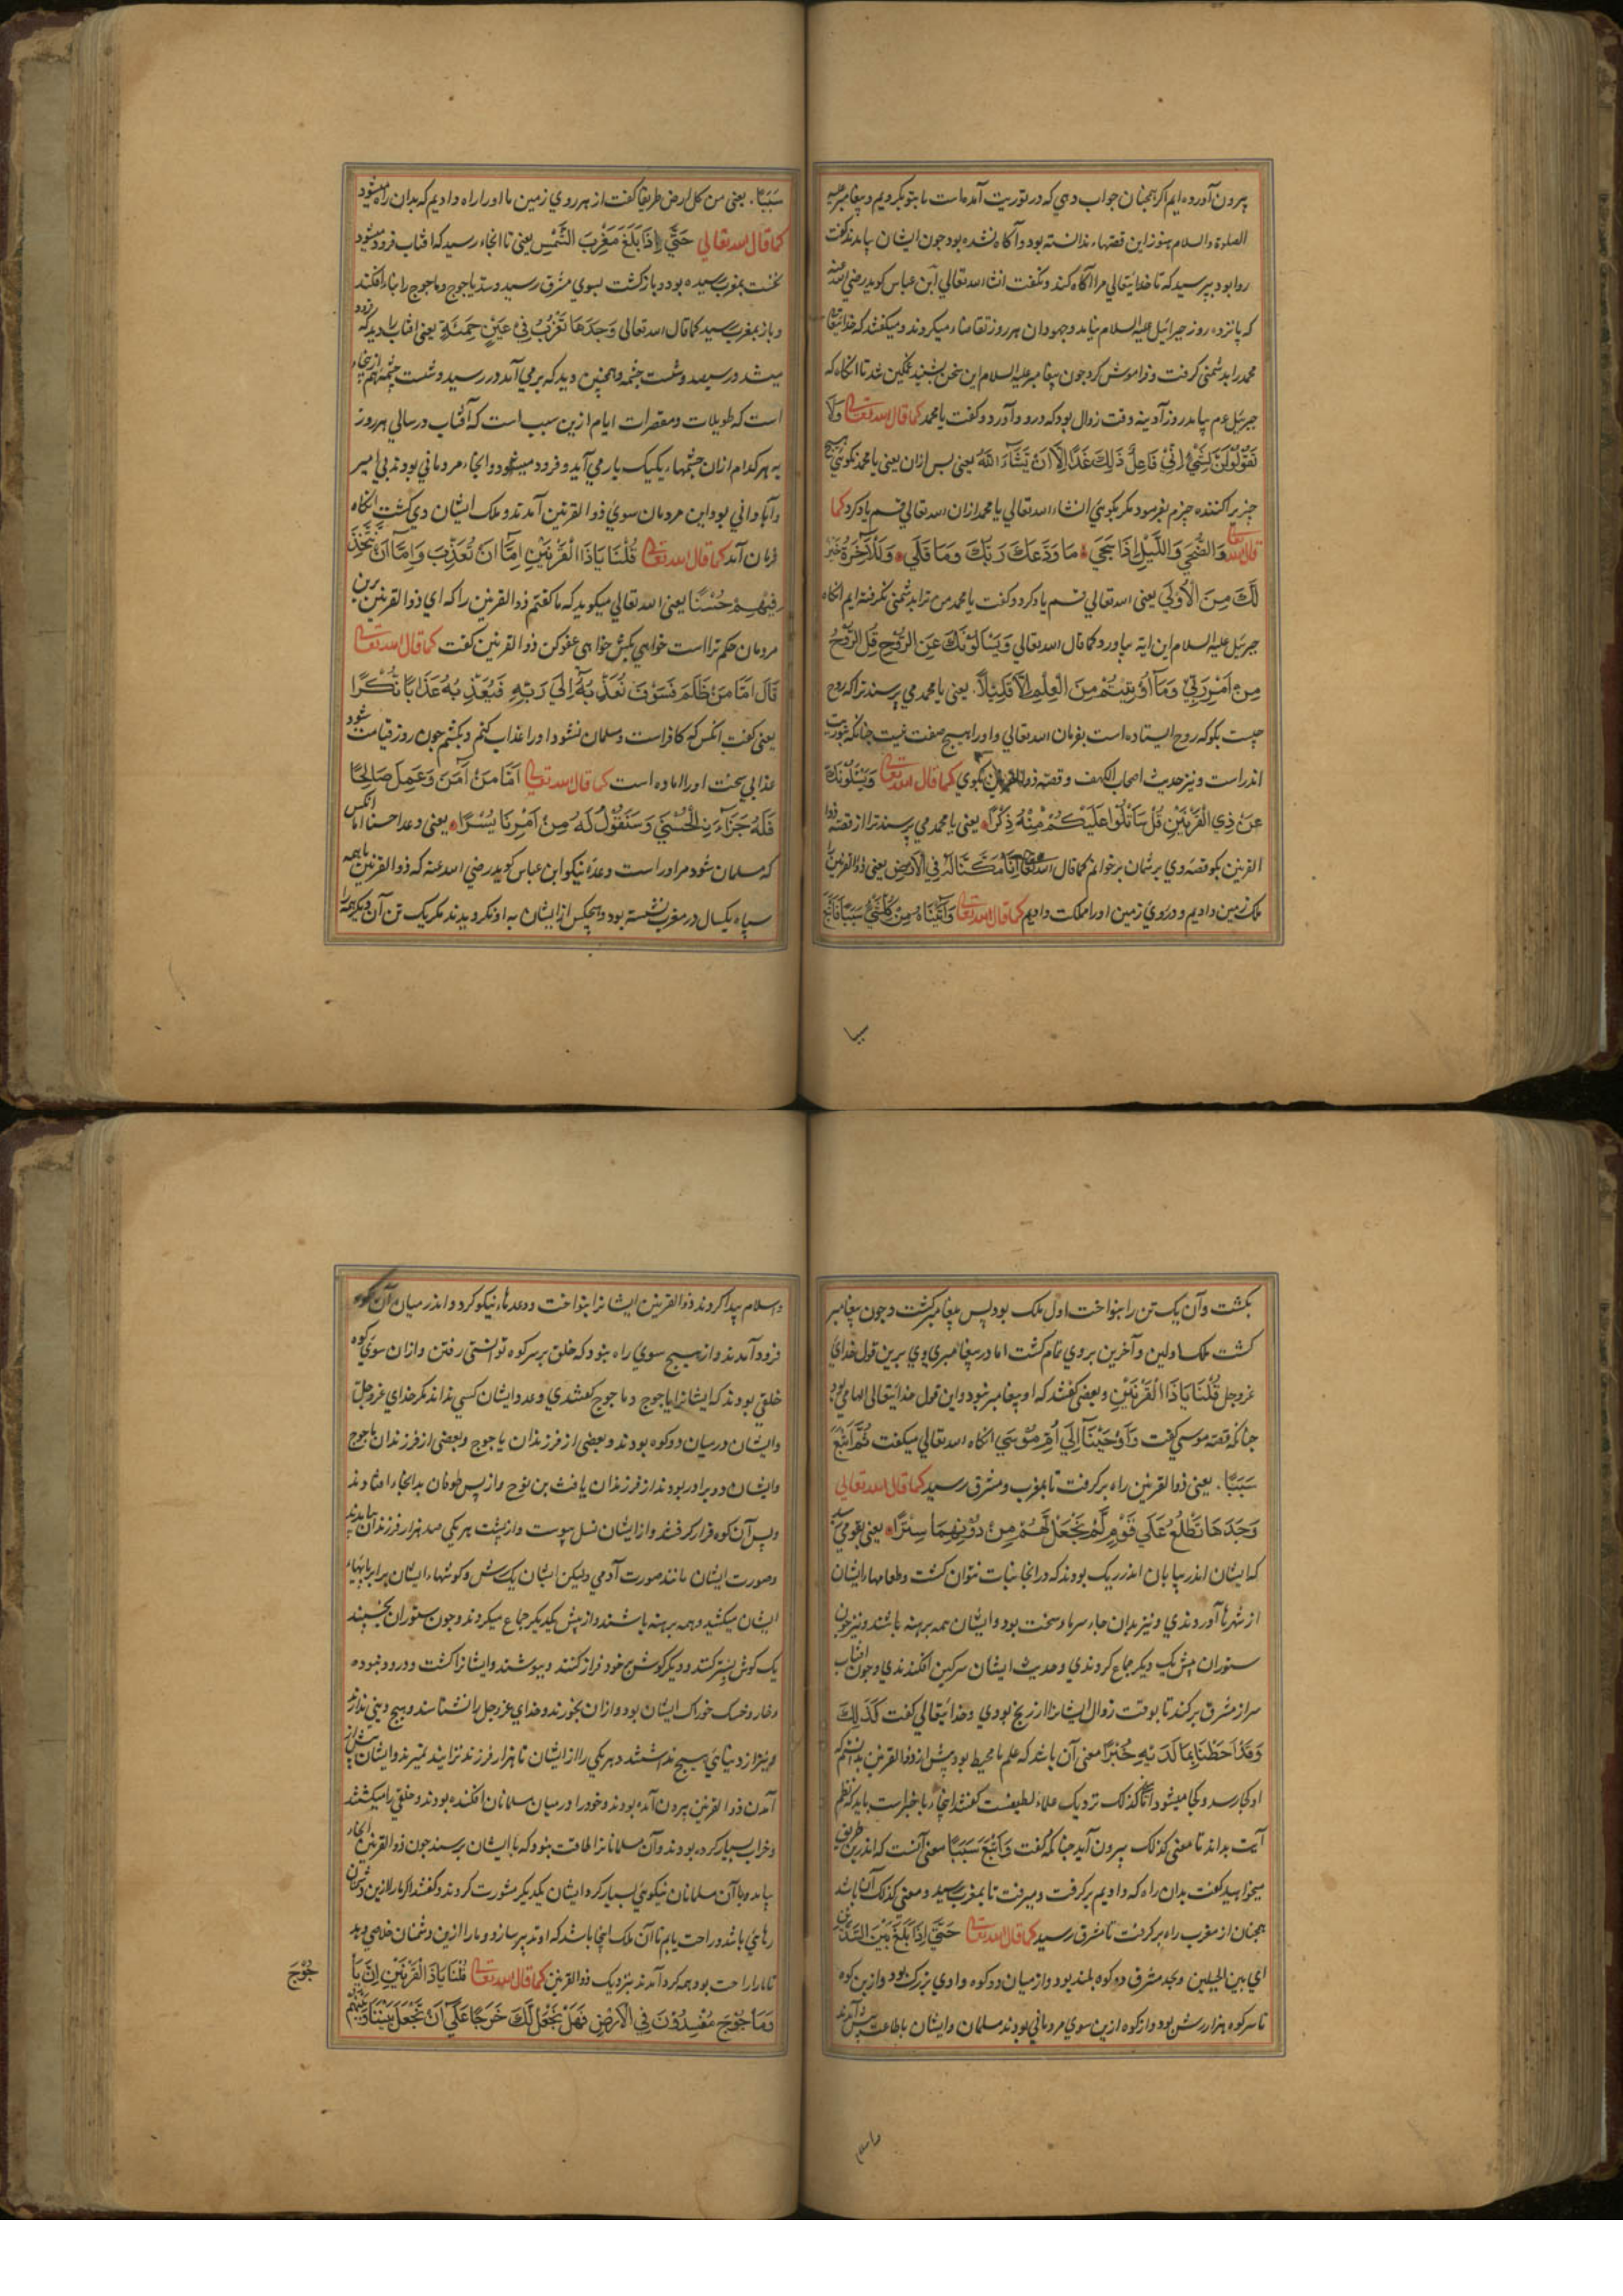 بیرون آورده ایم اکر همچنان جواب دهی که در توریت آمده است ما بتو بکرویم و پیغامبر علیه
الصلوة والسلام هنوز این قصهاء ندانسته بود و آکاه نشده بود جون ایشان بیامدند کفت
روا بود بپرسید که تا خدایتعالی مرا آکاه کند و نکفت انشاء الله تعالی ابن عباس کوید رضی الله عنه
که پانزده روز جبرائیل علیه السلام نیامد و جهودان هر روز تقاضاء میکردند و میکفتند که خدایتعالی
محمد را بدشمنی کرفت و فراموش کرد جون پیغامبر علیه السلام این سخن بشنید غمکین شد تا آنکاه که
جبرئیل عم بیامد روز آدینه وقت زوال بود که درود آورد و کفت یا محمد کما قال الله تعالی وَلَا
تَقُوْلُوْلَنَّ لِشَيْءٍ اِنِّيْ فَاعِلٌ ذٰلِكَ غَدًا اِلَّا اَنْ يَّشَآءَ اللّٰهُ یعنی پس ازان یعنی یا محمد نکوئی هیچ
چیز پراکننده چیزم بفرمود مکر بکوئی انشاء الله تعالی یا محمد ازان الله تعالی قسم یاد کرد کما
قال الله تعالی وَالضُّحٰي وَاللَّيْلِ اِذَا سَجٰي مَا وَدَّعَكَ رَبُّكَ وَمَا قَلٰي وَلَلْاٰخِرَةُ خَيْرٌ
لَّكَ مِنَ الْاُوْلٰي یعنی الله تعالی قسم یاد کرد و کفت یا محمد من ترا بدشمنی نکرفته ایم انکاه
جبرئیل علیه السلام این ایه بیاورد کما قال الله تعالی وَيَسْاَلُوْنَكَ عَنِ الرُّوْحِ قُلِ الرُّوْحُ
مِنْ اَمْرِ رَبِّيْ وَمَآ اُوْتِيْتُمْ مِنَ الْعِلْمِ اِلَّا قَلِيْلًا یعنی یا محمد می پرسند ترا که روح
چیست بکو که روح ایستاده است بفرمان الله تعالی و او را هیچ صفت نیست چنانکه توریت
اندر است و نیز حدیث اصحاب الکهف و قصه ذوالقرنین بکوی کما قال الله تعالی وَيَسْئَلُوْنَكَ
عَنْ ذِي الْقَرْنَيْنِ قُلْ سَاَتْلُوْا عَلَيْكُمْ مِنْهُ ذِكْرًا یعنی یا محمد می پرسند ترا از قصه ذوا
القرنین بکو قصه وی بر شمان بر خوانم کما قال الله تعالی اِنَّا مَكَّنَّا لَهُ فِي الْاَرْضِ یعنی ذو القرنین را
ملک زمین دادیم و در روی زمین او را مملکت دادیم کما قال الله تعالی وَاٰتَيْنَاهُ مِنْ كُلِّ شَيْءٍ سَبَبًا فَاَتْبَعَ
سببا
سَبَبًا یعنی من کل ارض طریقا کفت از هر روی زمین ما او را راه دادیم که بدان راه میشود
کما قال الله تعالی حَتّٰي اِذَا بَلَغَ مَغْرِبَ الشَّمْسِ یعنی تا آنجاء رسید که افتاب فرود میشود
نخست بمغرب رسیده بود و باز کشت بسوی مشرق رسید و سد یاجوج و ماجوج را بناء افکند
و باز بمغرب رسید کما قال الله تعالی وَجَدَهَا تَغْرُبُ فِيْ عَيْنٍ حَمِئَةٍ یعنی افتاب را دید که فرود
میشد در سیصد و شست چشمه و همچنین دید که بر می آمد در رسید و شست چشمه هم ازینجاء
است که طویلات و مقصرات ایام ازین سبب است که آفتاب در سالی هر روز
به هر کدام ازان چشمهاء یکیک بار می آید و فرود میشود و انجاء مردمانی بودند بی امیر
و آبادانی بود این مردمان سوی ذوالقرنین آمدند و ملک ایشان وی کشت انکاه
فرمان آمد کما قال الله تعالی قُلْنَا يَاذَا الْقَرْنَيْنِ اِمَّآ اَنْ تُعَذِّبَ وَاِمَّآ اَنْ تَتَّخِذَ
فِيْهِمْ حُسْنًا یعنی الله تعالی میکوید که ما کفتم ذوالقرنین را که ای ذوالقرنین برین
مردمان حکم تراست خواهی بکش خواهی عفو کن ذوالقرنین کفت کما قال الله تعالی
قَالَ اَمَّا مَنْ ظَلَمَ فَسَوْفَ نُعَذِّبُهُ اِلٰي رَبِّهٖ فَيُعَذِّبُهُ عَذَابًا نُّكْرًا
یعنی کفت انکس که کافر است و مسلمان نشود او را عذاب کنم و بکشم جون روز قیامت شود
عذابی سخت او را اماده است کما قال الله تعالی اَمَّا مَنْ اٰمَنَ وَعَمِلَ صَالِحًا
فَلَهُ جَزَآءَ نِ الْحُسْنٰي وَسَنَقُوْلُ لَهُ مِنْ اَمْرِنَا يُسْرًا یعنی وعدا حسنا اما انکس
که مسلمان شود مر او راست وعدهٔ نیکو ابن عباس کوید رضی الله عنه که ذوالقرنین با همه
سپاه یکسال در مغرب نشسته بود و هیچکس از ایشان به او نکرویدند مکر یک تن آن دیکر همه را
بکشت و آن یک تن را بنواخت اول ملک بود پس پیغامبر کشت و جون پیغامبر
کشت ملک اولین و آخرین بر وی تمام کشت اما در پیغامبری وی برین قول خدای
عزوجل قُلْنَا يَاذَا الْقَرْنَيْنِ و بعضی کفتند که او پیغامبر نبود و این قول خدایتعالی الهامی بود
چنانکه قصه موسی کفت وَاَوْحَيْنَآ اِلٰي اُمِّ مُوْسٰي انکاه الله تعالی میکفت ثُمَّ اَتْبَعَ
سَبَبًا یعنی ذوالقرنین راه بر کرفت تا بمغرب و مشرق رسید کما قال الله تعالی
وَجَدَهَا تَطْلُعُ عَلٰي قَوْمٍ لَمْ نَجْعَلْ لَّهُمْ مِنْ دُوْنِهَا سِتْرًا یعنی بقومی رسید
که ایشان اندر بیابان اندر ریک بودند که در انجا نبات نتوان کشت و طعامهاء ایشان
از شهرها آوردندی و نیز بدان جاء سرما و سخت بود و ایشان همه برهنه باشند و نیز جون
ستوران پیش یک دیکر جماع کردندی و حدیث ایشان سرکین افکندندی و جون افتاب
سر از مشرق بر کند تا بوقت زوال ایشانرا از رنج بودی و خدایتعالی کفت كَذٰلِكَ
وَقَدْ اَحَطْنَا بِمَا لَدَيْهِ خُبْرًا معنی آن باشد که علم ما محیط بود پیش از ذوالقرنین بدانستیم که
او کجا رسد و کجا میشود اما کذلک نزدیک علماء لطیفست کفتند اینجاء با خبر است باید که نظم
آیت بداند تا معنی کذلک بیرون آید چنانکه کفت وَاَتْبَعَ سَبَبًا معنی آنست که اندرین طریق
میخواهید کفت بدان راه که دادیم بر کرفت و میرفت تا بمغرب رسید و معنی کذلک آن باشد
همچنان از مغرب راه بر کرفت تا مشرق رسید کما قال الله تعالی حَتّٰي اِذَا بَلَغَ بَيْنَ السَّدَّيْنِ
ای بین الجبلین و بحد مشرق دو کوه بلند بود و از میان دو کوه وادی بزرک بود و ازین کوه
تا سر کوه هزار رشن بود و از کوه ازین سوی مردمانی بودند مسلمان و ایشان با طاعت پیش آمدند
واسلام
واسلام پیدا کردند ذوالقرنین ایشانرا بنواخت و وعدهاء نیکو کرد و اندر میان آن کوه
فرود آمدند و از هیچ سوی راه نبود که خلق بر سر کوه توانستی رفتن و ازان سوی کوه
خلقی بودند که ایشانرا یاجوج و ماجوج کفتندی و عدد ایشان کسی نداند مکر خدای عزوجل
و ایشان در میان دو کوه بودند و بعضی از فرزندان یاجوج و بعضی از فرزندان ماجوج
و ایشان دو برادر بودند از فرزندان یافث بن نوح و از پس طوفان بدانجاء افتادند
و پس آن کوه قرار کرفتند و از ایشان نسل پیوست و از پشت هر یکی صد هزار فرزندان بیامدند
و صورت ایشان مانند صورت آدمی ولیکن ایشان یک رش و کوشهاء ایشان برابر بالاء
ایشان میکشید و همه برهنه باشند و از پیش یکدیکر جماع میکردند و جون ستوران بخسبند
یک کوش بستر کنند و دیکر کوش بر خود فراز کنند و بپوشند و ایشانرا کشت و درود نبوده
و خار و خسک خوراک ایشان بود و ازان بخورند و خدای عزوجل را نشناسند و هیچ دینی ندارند
و نیز از دنیائی هیچ نداشتند و هر یکی را از ایشان تا هزار فرزند نزایند نمیرند و ایشان پیش از
آمدن ذوالقرنین بیرون آمده بودند و خود را در میان مسلمانان افکنده بودند و خلقی را میکشتند
و خراب بسیار کرده بودند و آن مسلمانانرا طاقت نبود که با ایشان برسند جون ذوالقرنین انجاء
بیامد و با آن مسلمانان نیکوئی بسیار کرد ایشان یکدیکر مشورت کردند و کفتند اکر مارا ازین دشمنان
رهائی باشد و راحت یابیم تا آن ملک اینجا باشد که او تدبیر سازد و مارا ازین دشمنان خلاصی دهد
تا مارا راحت بود همه کرد آمدند بنزدیک ذوالقرنین کما قال الله تعالی قُلْنَا يَاذَا الْقَرْنَيْنِ اِنَّ يَا
جُوْجَ
وَمَاْجُوْجَ مُفْسِدُوْنَ فِي الْاَرْضِ فَهَلْ نَجْعَلُ لَكَ خَرْجًا عَلٰٓي اَنْ تَجْعَلَ بَيْنَنَا وَبَيْنَهُمْ